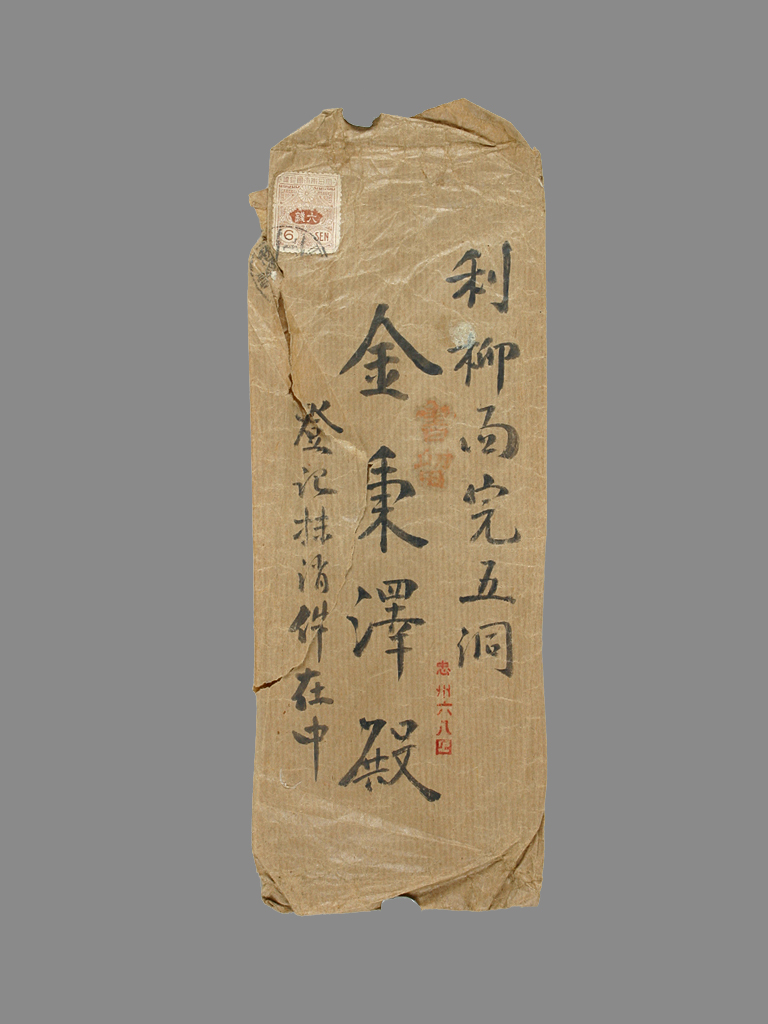 利柳面完五洞
書留
忠州六八四
金秉澤殿
登記抹消件在中
六錢
6 SEN